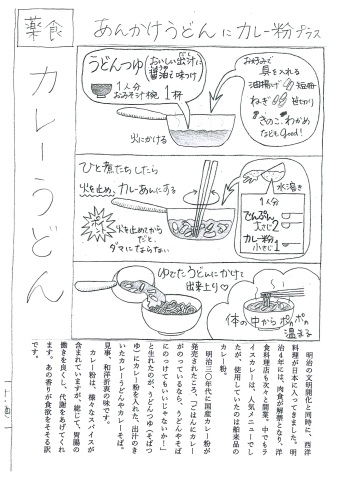 薬食
カレーうどん
あんかけうどんにカレー粉プラス
うどんつゆ
おいしい出汁に
醤油で味つけ
1人分
おみそ汁椀 1杯
火にかける
お好みで
具を入れる
油揚げ 短冊
ねぎ
きのこ、わかめ
などもGood!
ひと煮たちしたら
火を止め、カレーあんにする
ポイント
火を止めてから
だと、
ダマにならない
水溶き
1人分
でんぷん
大さじ2
カレー粉
小さじ1
ゆでたうどんにかけて
出来上り♡
体の中からポッポッ
温まる
明治の文明開化と同時に、西洋
料理が日本に入ってきました。明
治4年には、肉食が解禁となり、洋
食料理店も次々と開業。中でもラ
イスカレーは、人気メニューでし
たが、使用していたのは舶来品の
カレー粉。
明治三〇年代に国産カレー粉が
発売されたころ、「ごはんにカレー
がのっているなら、うどんやそば
にのっけてもいいじゃないか！」
と生れたのが、うどんつゆ（そばつ
ゆ）にカレー粉を入れた、出汁のき
いたカレーうどんやカレーそば。
見事、和洋折衷の味です。
カレー粉は、様々なスパイスが
含まれていますが、総じて、胃腸の
働きを良くし、代謝をあげてくれ
ます。あの香りが食欲をそそる訳
です。